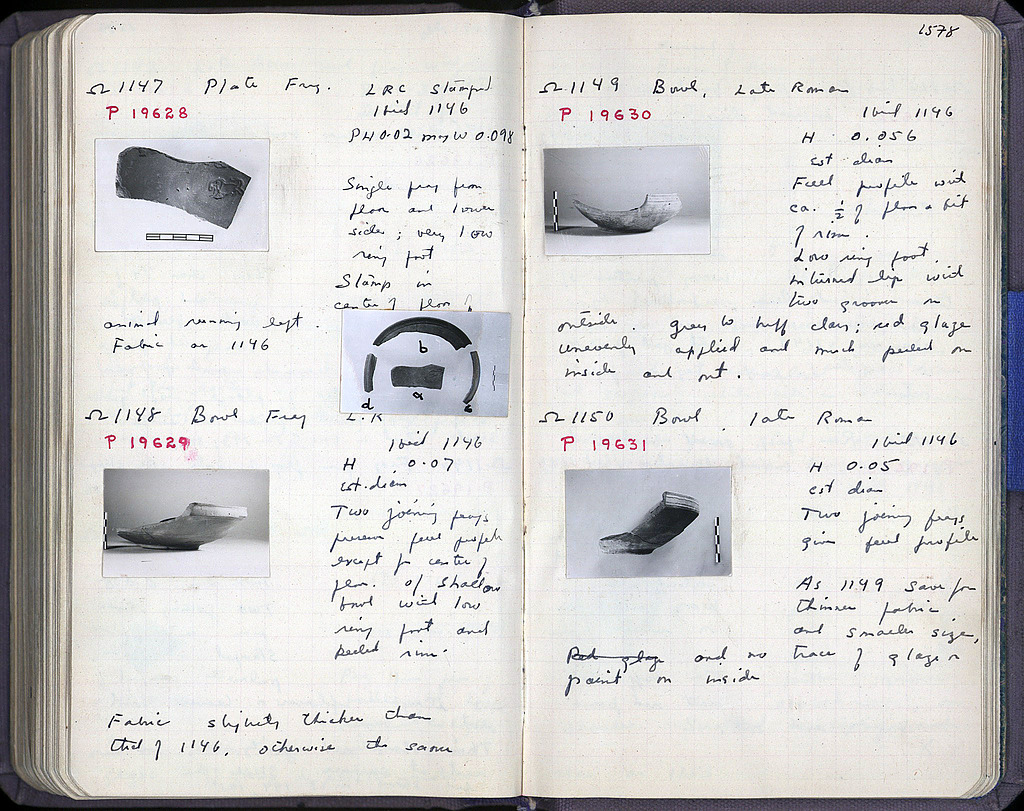 Ω 1147 Plate Frag. LRC stamped
P 19628
Ibid 1146
PH 0.02 max W 0.098
Single frag from
floor and lower
sides; very low
ring foot
Stamp in
center of floor:
animal running left.
Fabric as 1146
b
d
a
c
Ω 1148 Bowl Frag L.R
P 19629
Ibid 1146
H 0.07
est. diam
Two joining frags
preserve full profile
except for center of
floor. of shallow
bowl with low
ring foot and
peeled rim.
Fabric slightly thicker than
that of 1146. otherwise the same
1578
Ω 1149 Bowl, Late Roman
P 19630
Ibid 1146
H 0.056
est diam
Full profile with
ca. ½ of floor & bit
of rim.
Low ring foot.
inturned lip with
two grooves on
outside. grey to buff clay; red glaze
unevenly applied and much peeled on
inside and out.
Ω 1150 Bowl, late Roman
P 19631
Ibid 1146
H 0.05
est diam
Two joining frags
give full profile
As 1149 save for
thinner fabric
and smaller size,
Red glaze and no trace of glaze or
paint on inside